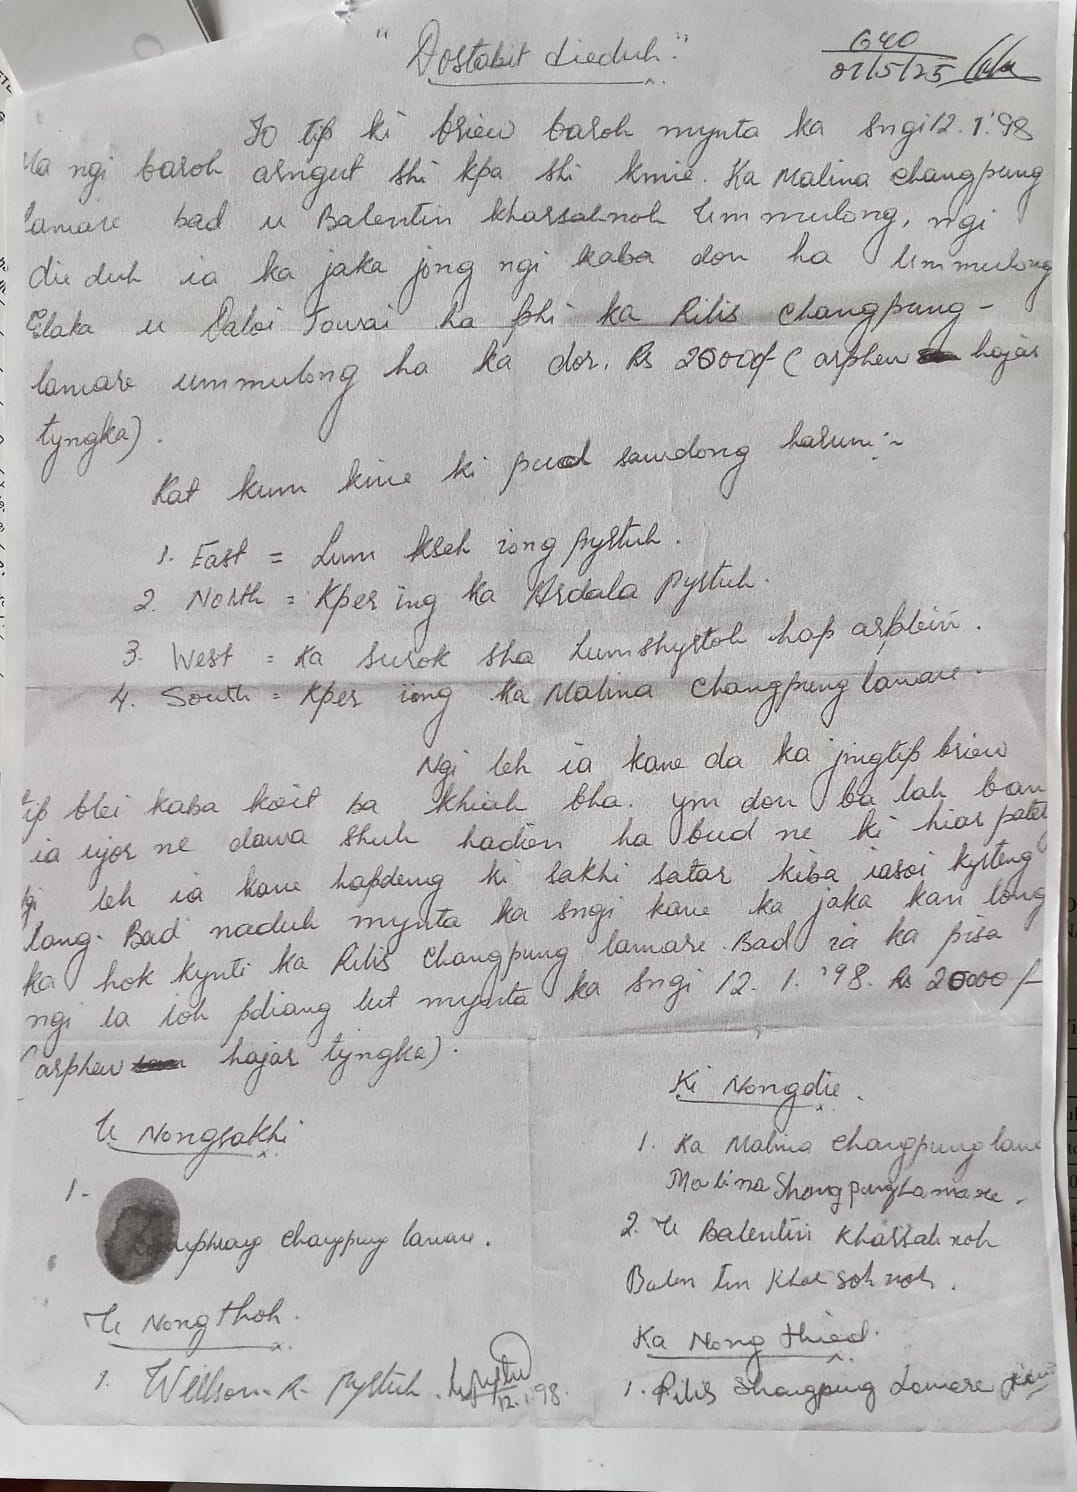 "Dostabit dieduh"
640
01/5/25
To tip ki briew baroh mynta ka sngi 12.1.'98
Ma ngi baroh arngut shi kpa shi kmie. Ka Malina Changpung
lamare bad u Balentin Kharsahnoh Ummulong, ngi
die duh ia ka jaka jong ngi kaba don ha Ummulong
Elaka u Daloi Jowai ha phi ka Rilis Changpung-
lamare ummulong ha ka dor. Rs 20000/- (arphew hajar
tyngka).
Kat kum kine ki pud sawdong harum:-
1. East = Lum kseh iong pystuh.
2. North = Kper ing ka Ardala Pystuh.
3. West = Ka surok sha Lumshyrtoh hap arphein.
4. South = Kper iong ka Malina Changpung lamare.
Ngi leh ia kane da ka jingtip briew
tip blei kaba koit ba khiah bha. ym don ba lah ban
ia ujor ne dawa shuh hadien ha bud ne ki hiar pateng
Ngi leh ia kane hapdeng ki sakhi satar kiba iasoi kyrteng
lang. Bad naduh mynta ka sngi kane ka jaka kan long
ka hok kynti ka Rilis Changpung lamare. Bad ia ka pisa
ngi la ioh pdiang lut mynta ka sngi 12. 1. '98. Rs 20000/-
(arphew hajar tyngka).
U Nongsakhi
1-
Changpung lamare.
U Nongthoh.
1. Willson. R. Pystuh.
12.1.98.
Ki Nongdie.
1. Ka Malina Changpung lamare
Malina Shangpung Lamare.
2. U Balentin Kharsahnoh
Balen tin Khar soh noh.
Ka Nong thied.
1. Rilis Shangpung Lamare